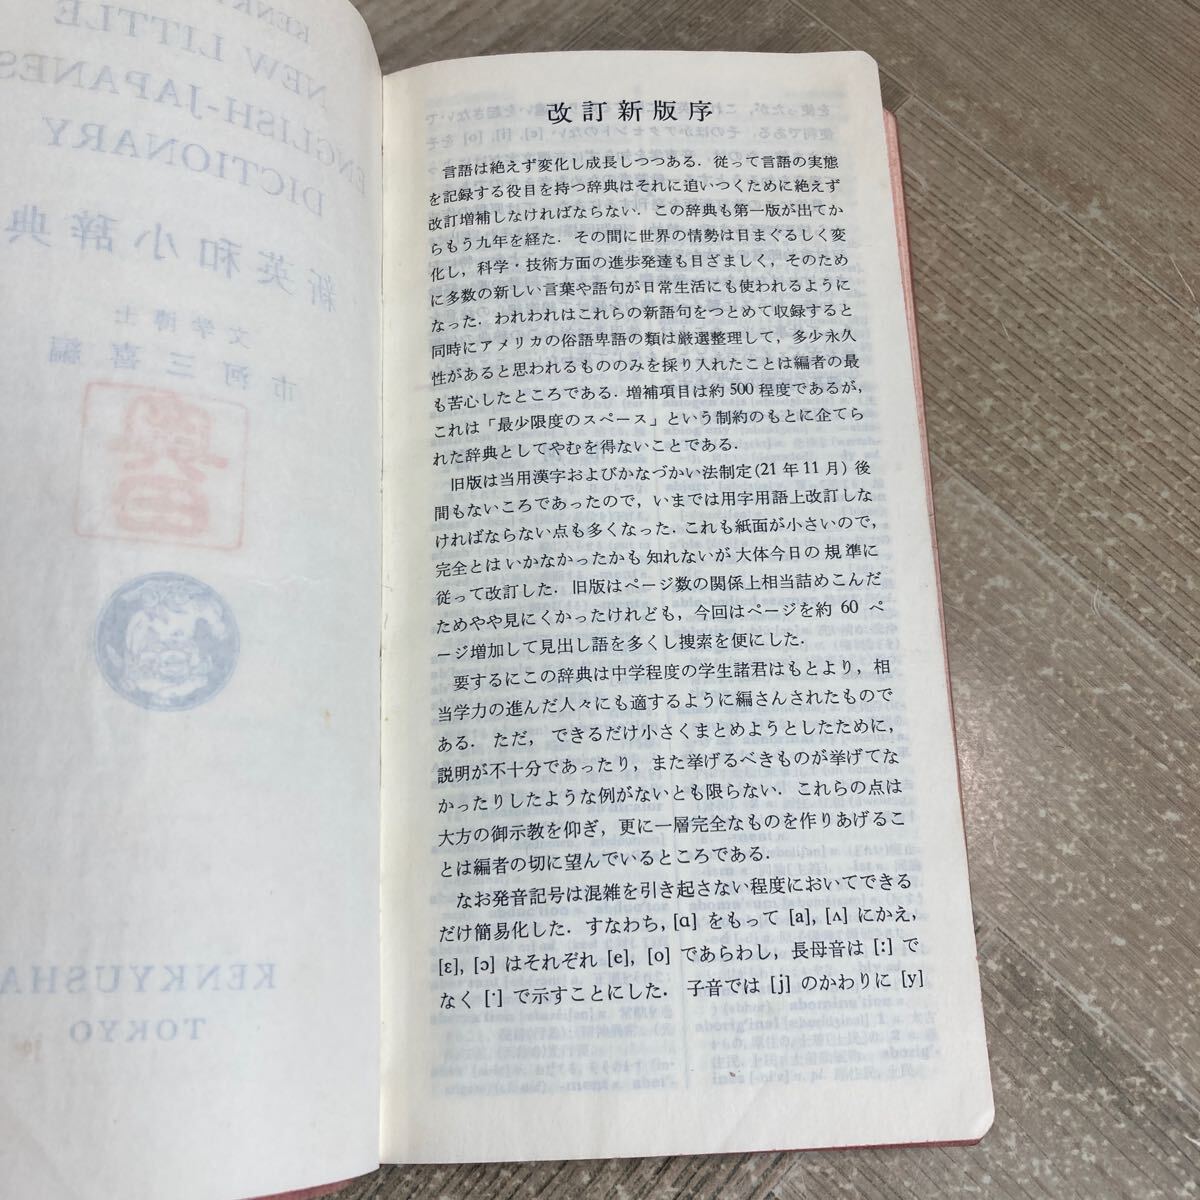 KENKY
NEW LITTLE
ENGLISH-JAPANES
DICTIONARY
新英和小辞典
文学博士
市河三喜編
KENKYUSHA
TOKYO
改訂新版序
言語は絶えず変化し成長しつつある．従って言語の実態
を記録する役目を持つ辞典はそれに追いつくために絶えず
改訂増補しなければならない．この辞典も第一版が出てか
らもう九年を経た．その間に世界の情勢は目まぐるしく変
化し，科学・技術方面の進歩発達も目ざましく，そのため
に多数の新しい言葉や語句が日常生活にも使われるように
なった．われわれはこれらの新語句をつとめて収録すると
同時にアメリカの俗語卑語の類は厳選整理して，多少永久
性があると思われるもののみを採り入れたことは編者の最
も苦心したところである．増補項目は約500程度であるが，
これは「最少限度のスペース」という制約のもとに企てら
れた辞典としてやむを得ないことである．
旧版は当用漢字およびかなづかい法制定(21年11月)後
間もないころであったので，いまでは用字用語上改訂しな
ければならない点も多くなった．これも紙面が小さいので，
完全とはいかなかったかも知れないが大体今日の規準に
従って改訂した．旧版はページ数の関係上相当詰めこんだ
ためやや見にくかったけれども，今回はページを約60ペ
ージ増加して見出し語を多くし捜索を便にした．
要するにこの辞典は中学程度の学生諸君はもとより，相
当学力の進んだ人々にも適するように編さんされたもので
ある．ただ，できるだけ小さくまとめようとしたために，
説明が不十分であったり，また挙げるべきものが挙げてな
かったりしたような例がないとも限らない．これらの点は
大方の御示教を仰ぎ，更に一層完全なものを作りあげるこ
とは編者の切に望んでいるところである．
なお発音記号は混雑を引き起さない程度においてできる
だけ簡易化した．すなわち，[ɑ]をもって[a], [ʌ]にかえ，
[ɛ], [ɔ]はそれぞれ[e], [o]であらわし，長母音は[ː]で
なく[·]で示すことにした．子音では[j]のかわりに[y]